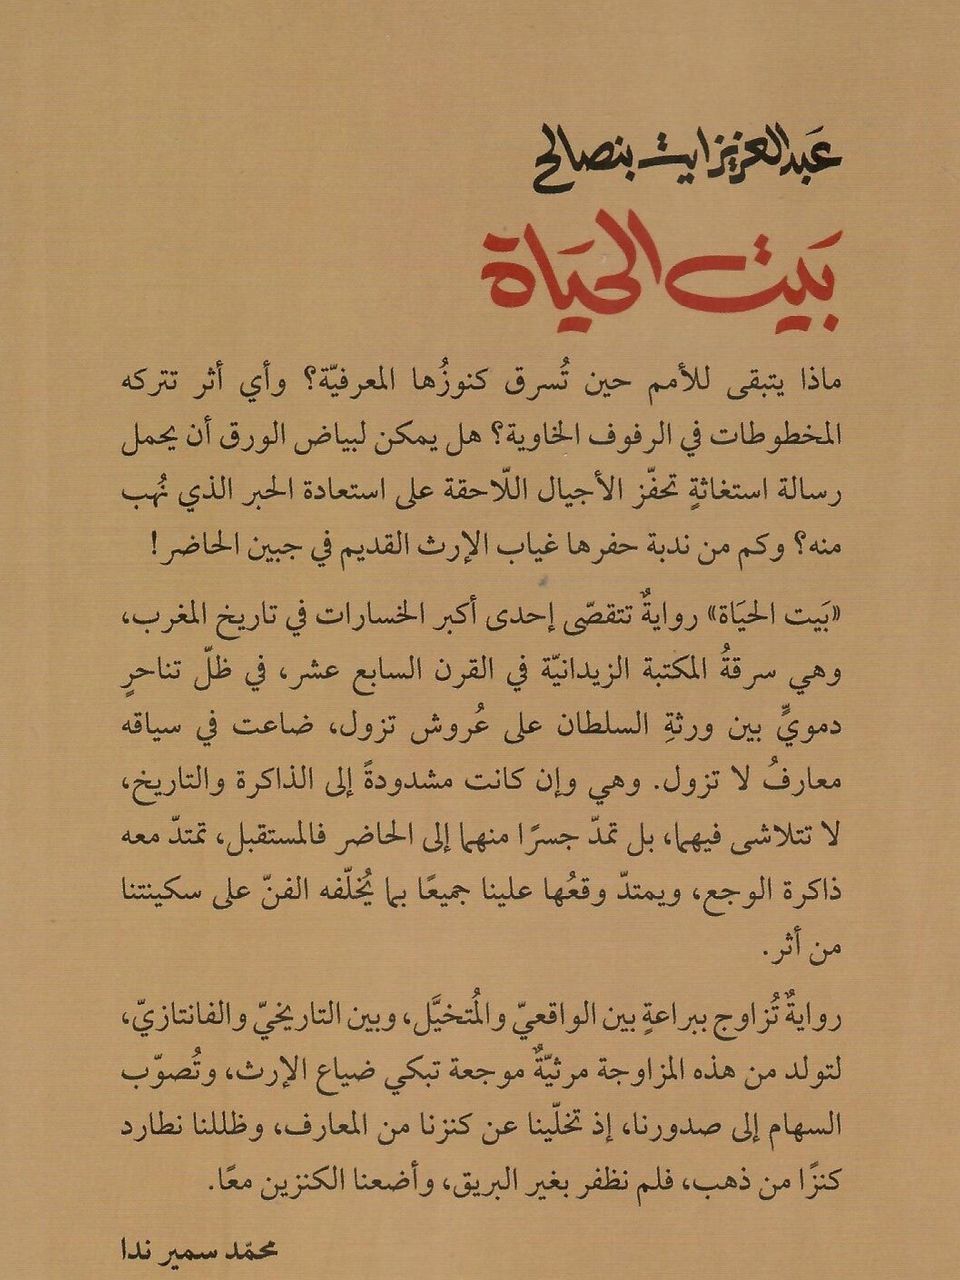 عَبد العزيز ايت بنصالح
بَيت الحيَاة
ماذا يتبقى للأمم حين تُسرق كنوزُها المعرفيّة؟ وأي أثر تتركه
المخطوطات في الرفوف الخاوية؟ هل يمكن لبياض الورق أن يحمل
رسالة استغاثةٍ تحفّز الأجيال اللّاحقة على استعادة الحبر الذي نُهب
منه؟ وكم من ندبة حفرها غياب الإرث القديم في جبين الحاضر!
«بَيت الحيَاة» روايةٌ تتقصّى إحدى أكبر الخسارات في تاريخ المغرب،
وهي سرقةُ المكتبة الزيدانيّة في القرن السابع عشر، في ظلّ تناحرٍ
دمويٍّ بين ورثةِ السلطان على عُروش تزول، ضاعت في سياقه
معارفُ لا تزول. وهي وإن كانت مشدودةً إلى الذاكرة والتاريخ،
لا تتلاشى فيهما، بل تمدّ جسرًا منهما إلى الحاضر فالمستقبل، تمتدّ معه
ذاكرة الوجع، ويمتدّ وقعُها علينا جميعًا بما يُخلّفه الفنّ على سكينتنا
من أثر.
روايةٌ تُزاوج ببراعةٍ بين الواقعيّ والمُتخيَّل، وبين التاريخيّ والفانتازيّ،
لتولد من هذه المزاوجة مرثيّةٌ موجعة تبكي ضياع الإرث، وتُصوّب
السهام إلى صدورنا، إذ تخلّينا عن كنزنا من المعارف، وظللنا نطارد
كنزًا من ذهب، فلم نظفر بغير البريق، وأضعنا الكنزين معًا.
محمّد سمير ندا